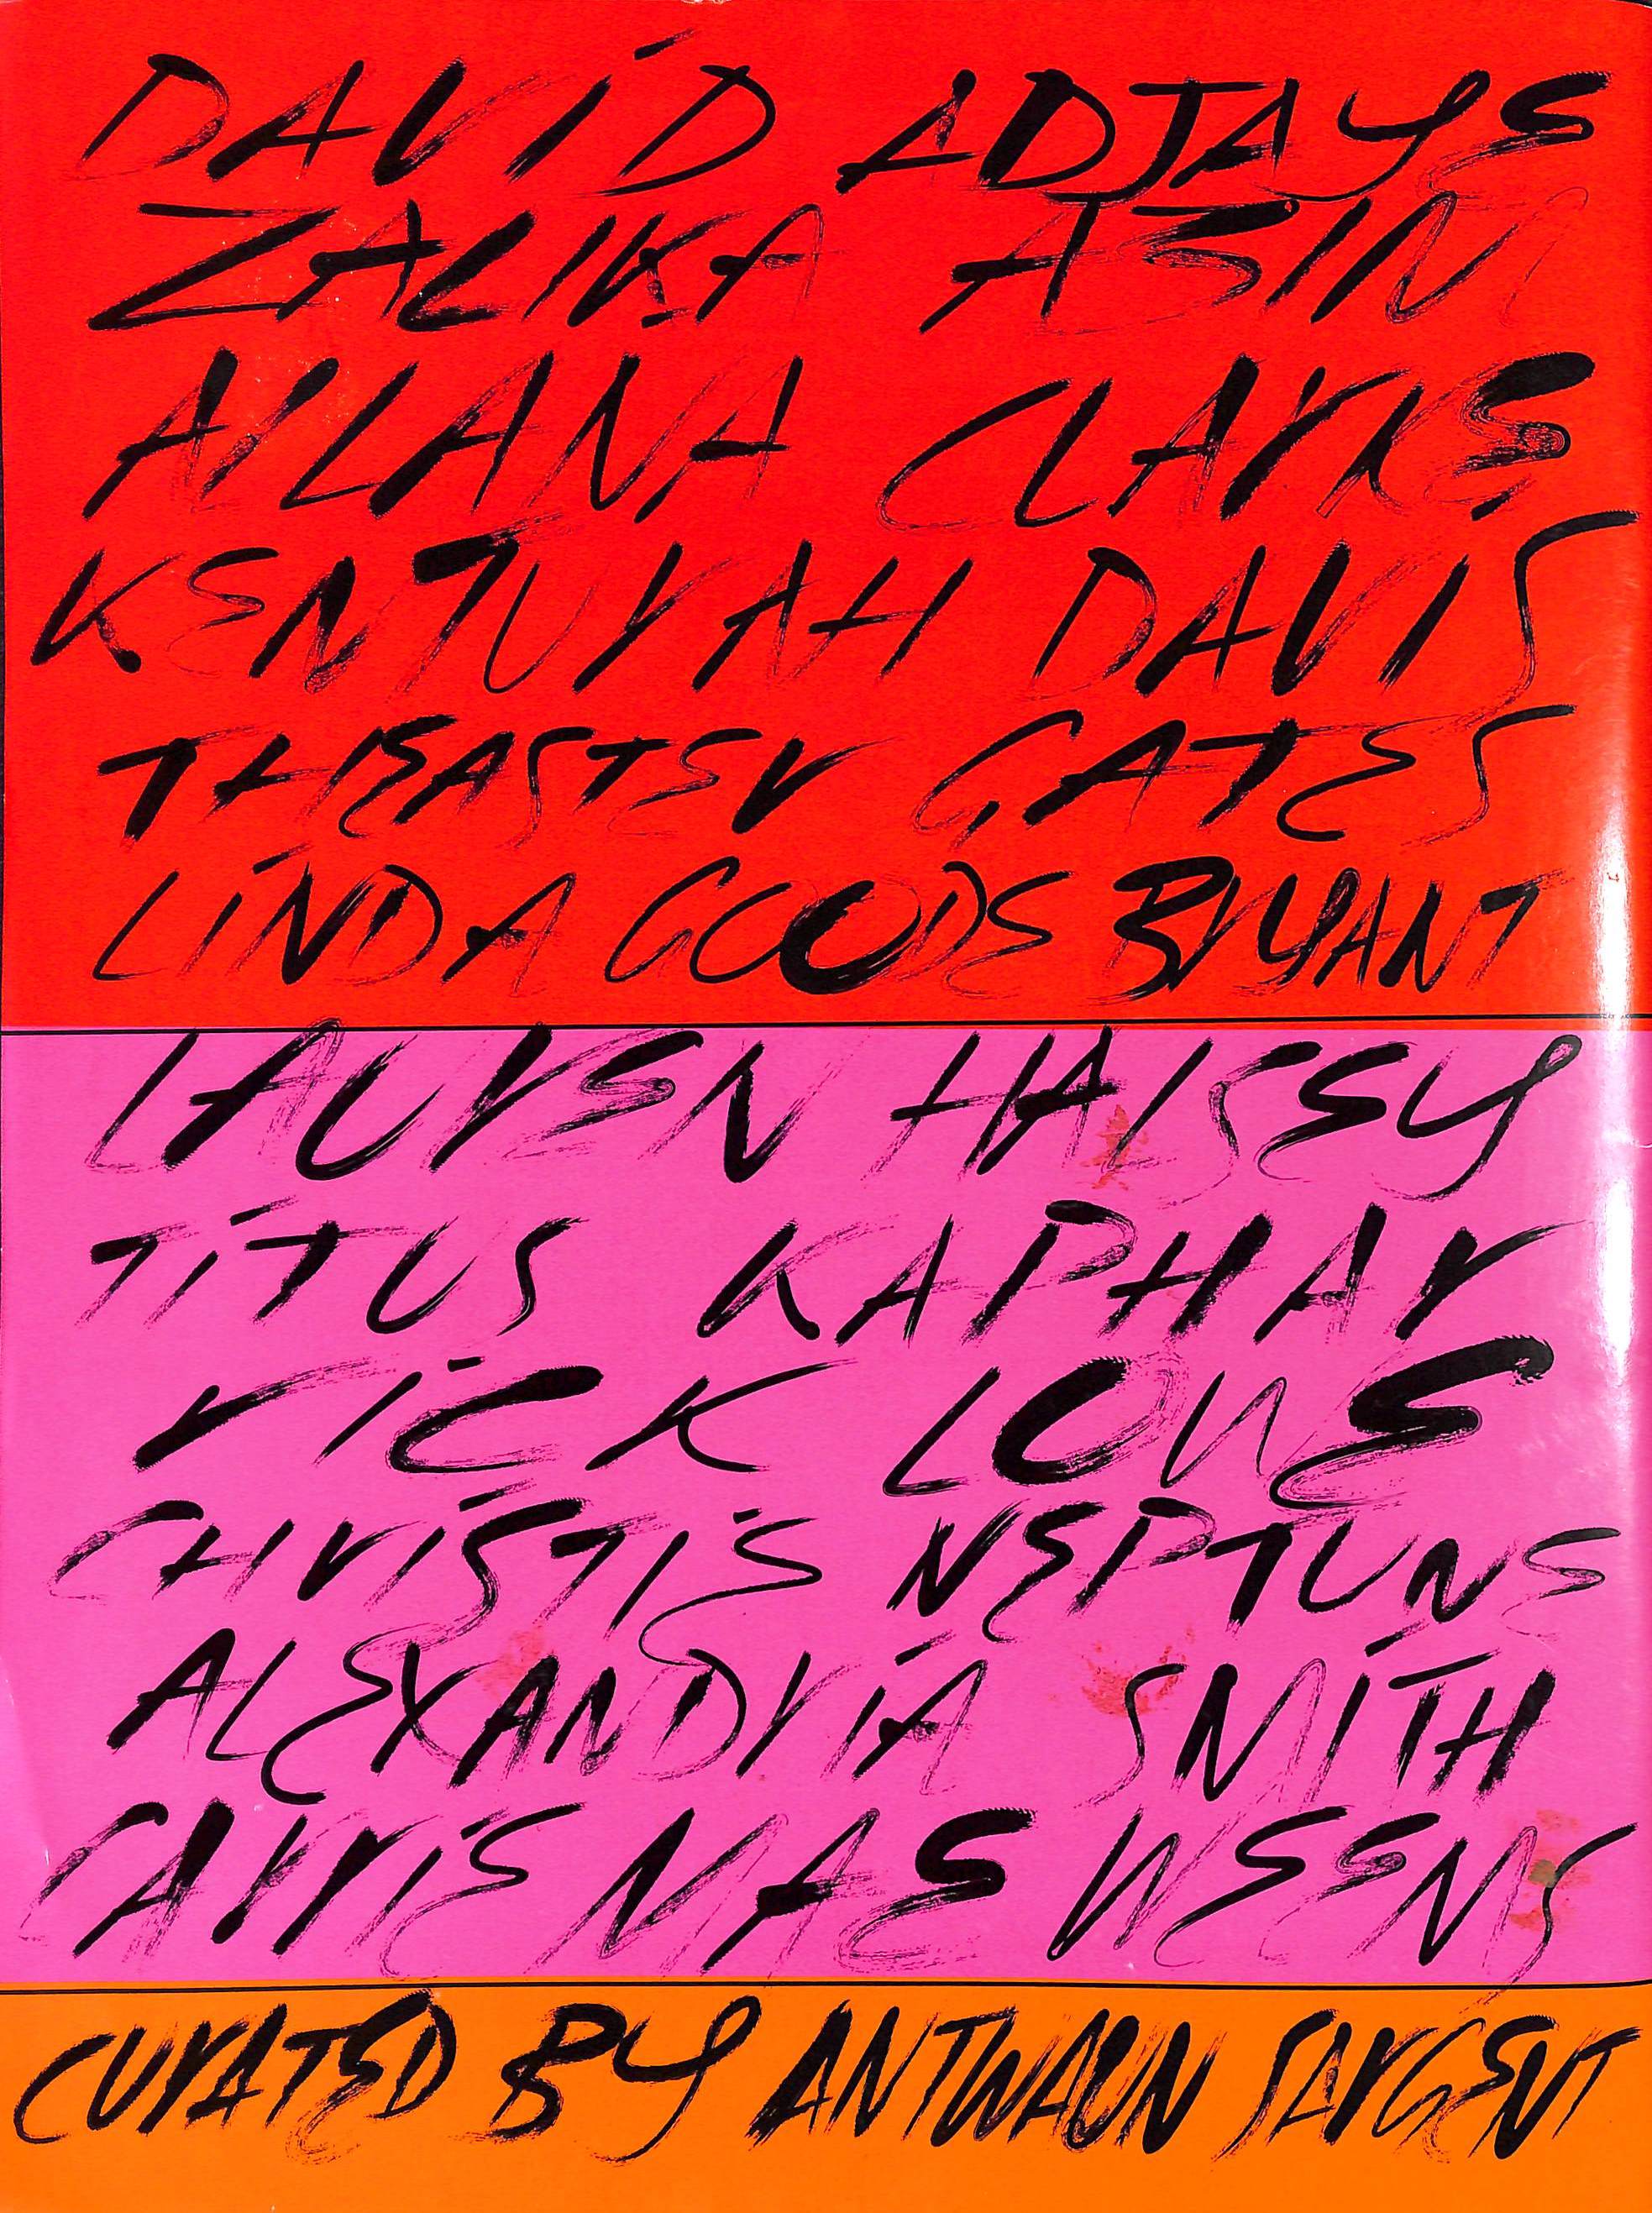 DAVID ADJAYE
ZALIKA AZIM
ALLANA CLARKE
KENTURAH DAVIS
THEASTER GATES
LINDA GOODE BRYANT
LAUREN HALSEY
TITUS KAPHAR
RICK LOWE
CHRISTIE NEPTUNE
ALEXANDRIA SMITH
CARRIE MAE WEEMS
CURATED BY ANTWAUN SARGENT